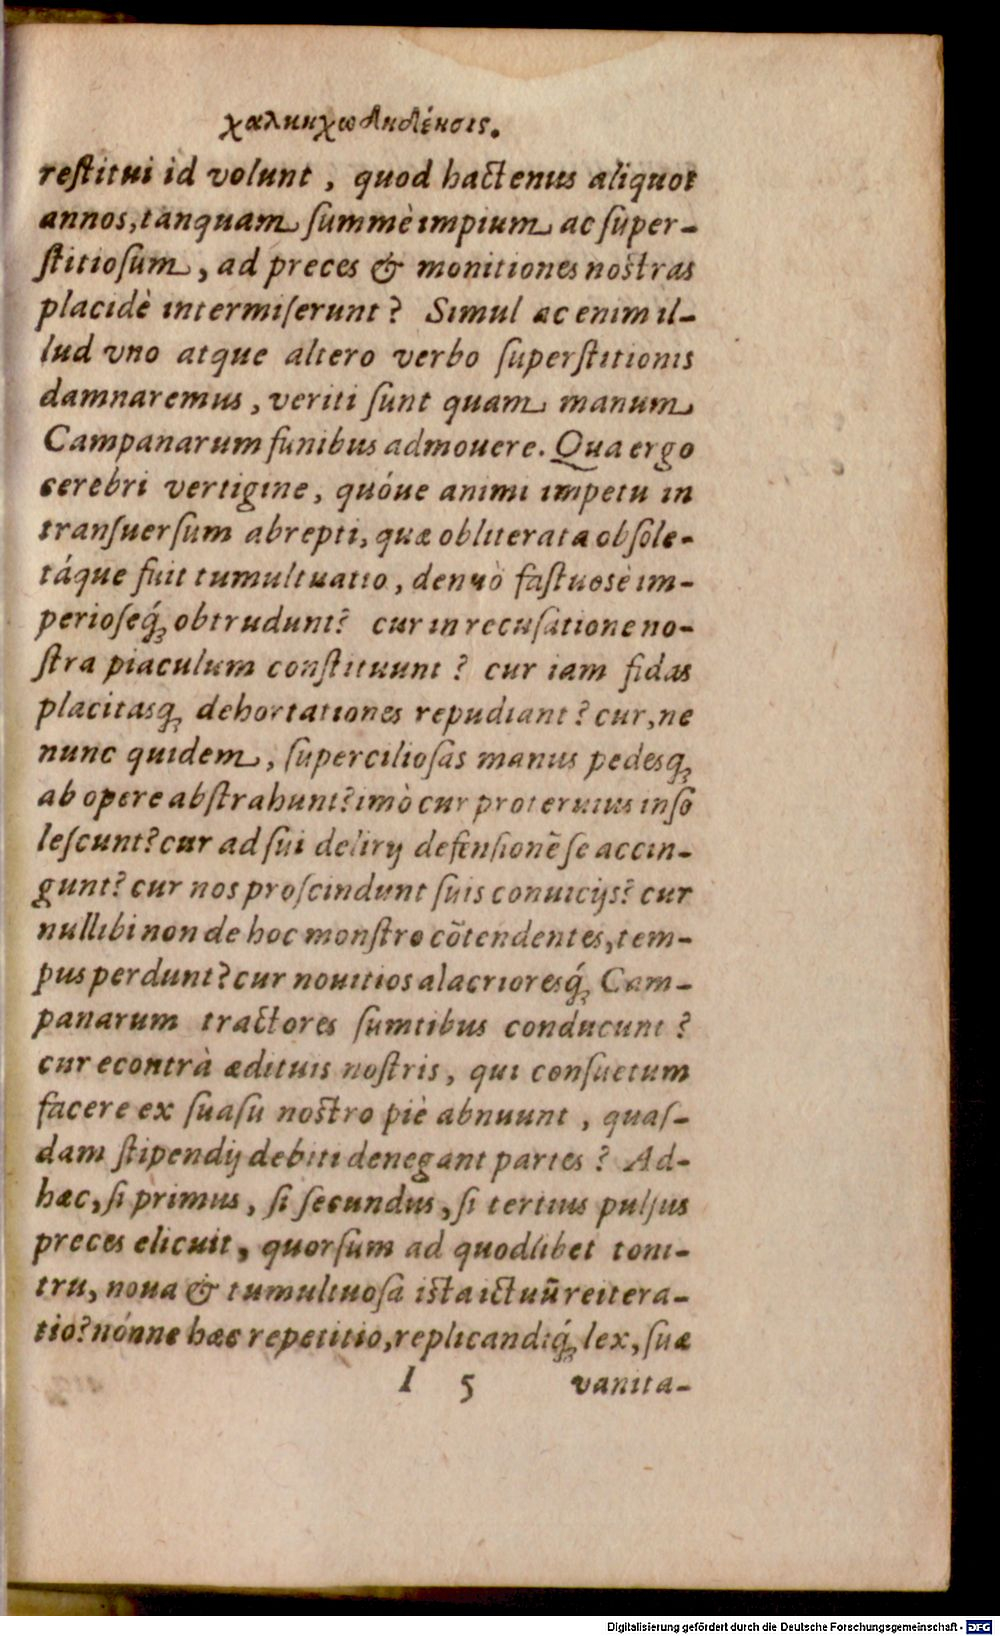 χαλκηχωδηδίησις.
reſtitui id volunt, quod hactenus aliquot
annos, tanquam ſummè impium ac ſuper-
ſtitioſum, ad preces & monitiones noſtras
placidè intermiſerunt? Simul ac enim il-
lud vno atque altero verbo ſuperſtitionis
damnaremus, veriti ſunt quam manum
Campanarum funibus admouere. Qua ergo
cerebri vertigine, quóue animi impetu in
tranſuerſum abrepti, quæ obliterata obſole-
táque fuit tumultuatio, denuò faſtuosè im-
perioſeq́; obtrudunt? cur in recuſatione no-
ſtra piaculum conſtituunt? cur iam fidas
placitasq; dehortationes repudiant? cur, ne
nunc quidem, ſupercilioſas manus pedesq;
ab opere abſtrahunt? imò cur proteruius inſo
leſcunt? cur ad ſui delirij defenſionẽ ſe accin-
gunt? cur nos proſcindunt ſuis conuicijs? cur
nullibi non de hoc monſtro cõtendentes, tem-
pus perdunt? cur nouitios alacrioresq́; Cam-
panarum tractores ſumtibus conducunt?
cur econtrà ædituis noſtris, qui conſuetum
facere ex ſuaſu noſtro piè abnuunt, quaſ-
dam ſtipendij debiti denegant partes? Ad-
hæc, ſi primus, ſi ſecundus, ſi tertius pulſus
preces elicuit, quorſum ad quodlibet toni-
tru, noua & tumultuoſa iſta ictuũ reitera-
tio? nónne hæc repetitio, replicandiq́; lex, ſuæ
I 5 vanita-
Digitalisierung gefördert durch die Deutsche Forschungsgemeinschaft - DFG